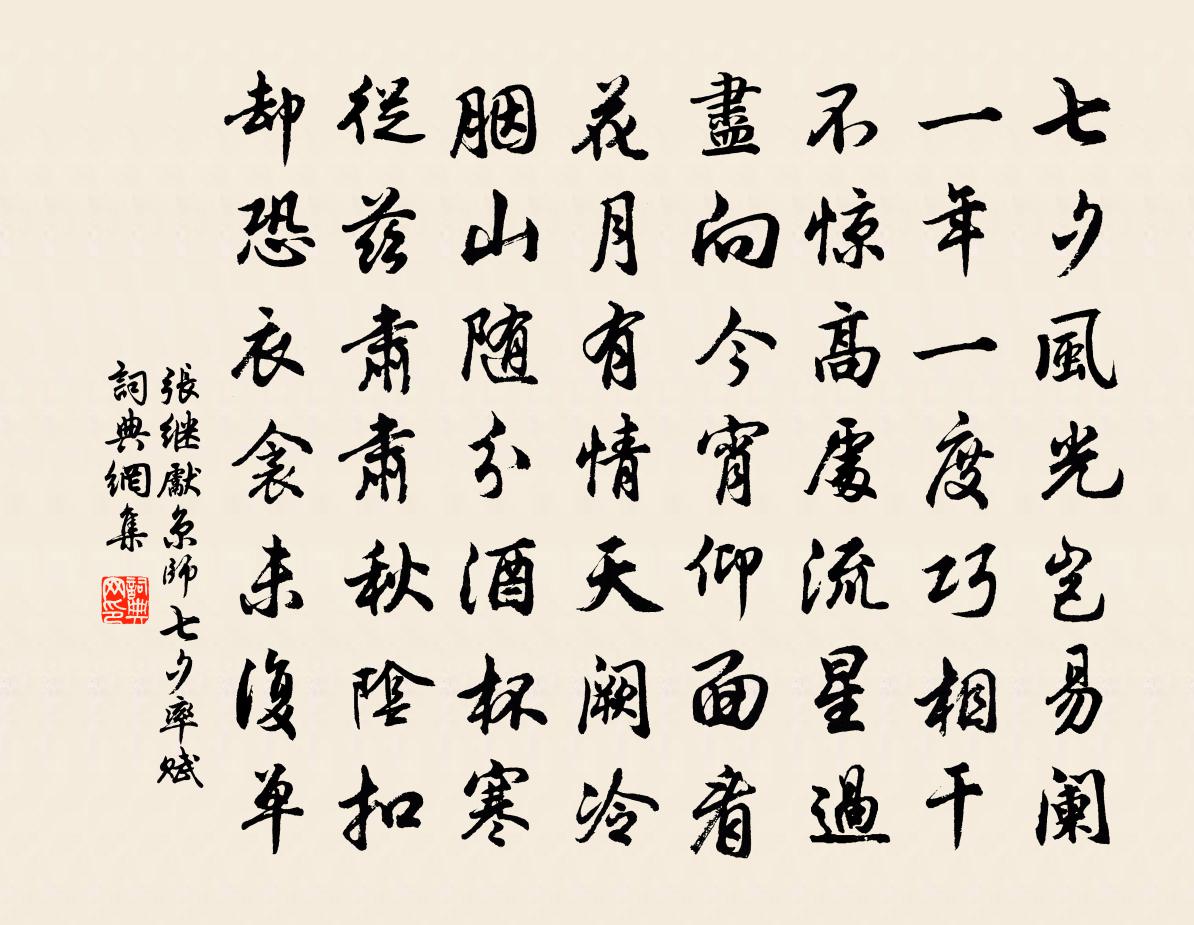 七夕風光豈易闌
一年一度巧相干
不惊高處流星過
盡向今宵仰面看
花月有情天闕冷
胭山随分酒杯寒
從茲肅肅秋陰扣
却恐衣衾未復单
張继獻京師七夕率賦
詞典網集
詞典网印